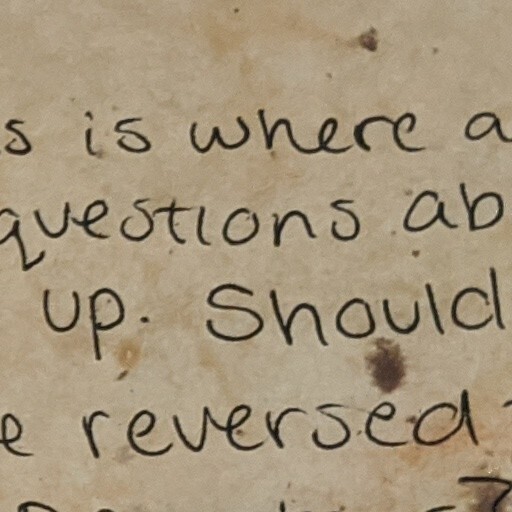 s is where a
questions ab
up. Should
e reversed